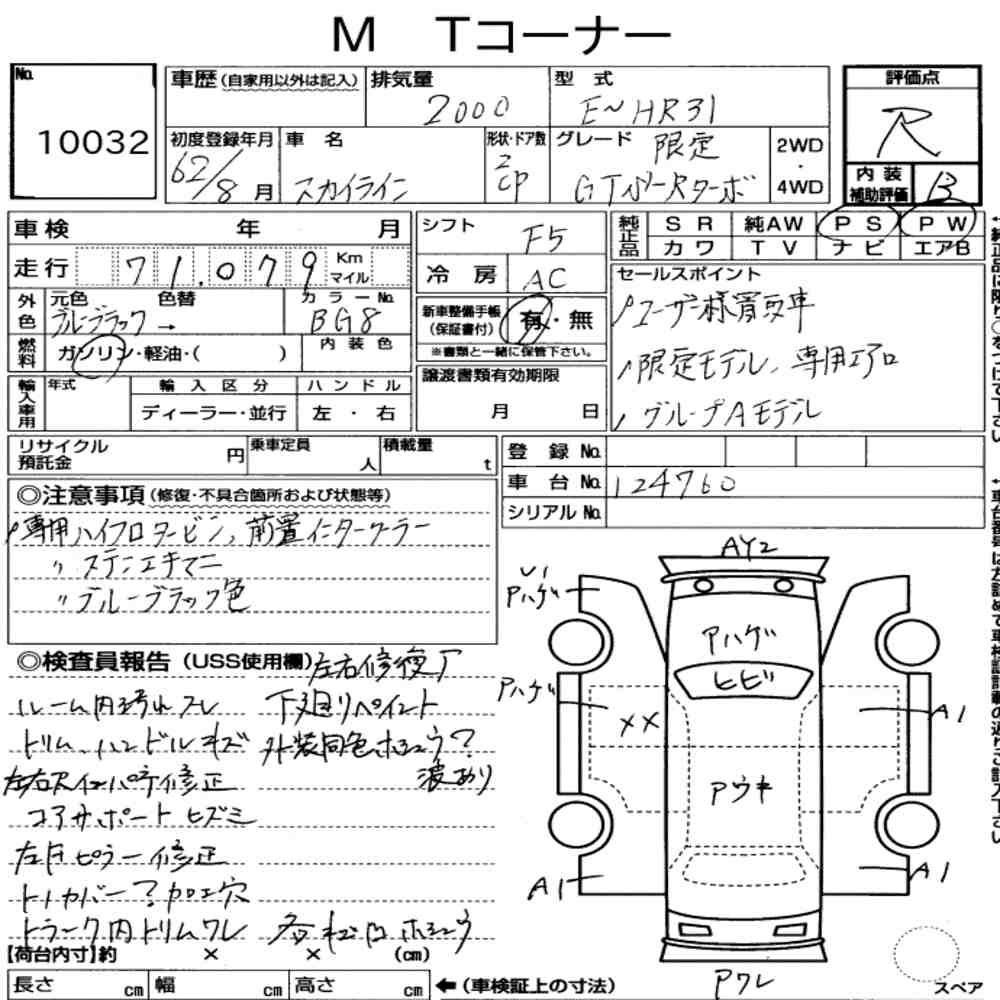 M Tコーナー
No.
10032
車歴(自家用以外は記入)
排気量
2000
型式
E-HR31
評価点
R
初度登録年月
62/8月
車名
スカイライン
形状・ドア数
2
CP
グレード
限定
GTS-Rターボ
2WD
・
4WD
内装
補助評価
B
車検 年 月
シフト
F5
純正品
SR 純AW PS PW
カワ TV ナビ エアB
走行 71,079 Km
マイル
冷房 AC
セールスポイント
ユーザー様買取車
限定モデル、専用エアロ
グループAモデル
外色
元色 色替
ブルーブラック →
カラーNo.
BG8
新車整備手帳
(保証書付)
有・無
※書類と一緒に保管下さい。
燃料
ガソリン・軽油・( )
内装色
輸入車用
年式
輸入区分
ディーラー・並行
ハンドル
左・右
譲渡書類有効期限
月 日
リサイクル
預託金 円
乗車定員 人
積載量 t
登録No.
車台No. 124760
シリアルNo.
◎注意事項(修復・不具合箇所および状態等)
専用ハイフロータービン、前置インタークーラー
〃 ステンエキマニ
〃 ブルーブラック色
◎検査員報告(USS使用欄)
左右修復歴
ルーム内汚れスレ 下廻りペイント
トリム、ハンドルキズ 外装同色ホシュウ?
波あり
左右インサイドパネル修正
コアサポートヒズミ
左Fピラー修正
トノカバー?カロエ穴
トランク内トリムワレ 各キズ凹ホシュウ
【荷台内寸】約 × × (cm)
長さ cm 幅 cm 高さ cm ←(車検証上の寸法)
AY2
U1
Pハゲ
Aハゲ
ヒビ
Pハゲ
××
A1
Pウキ
A1
A1
Pワレ
スペア